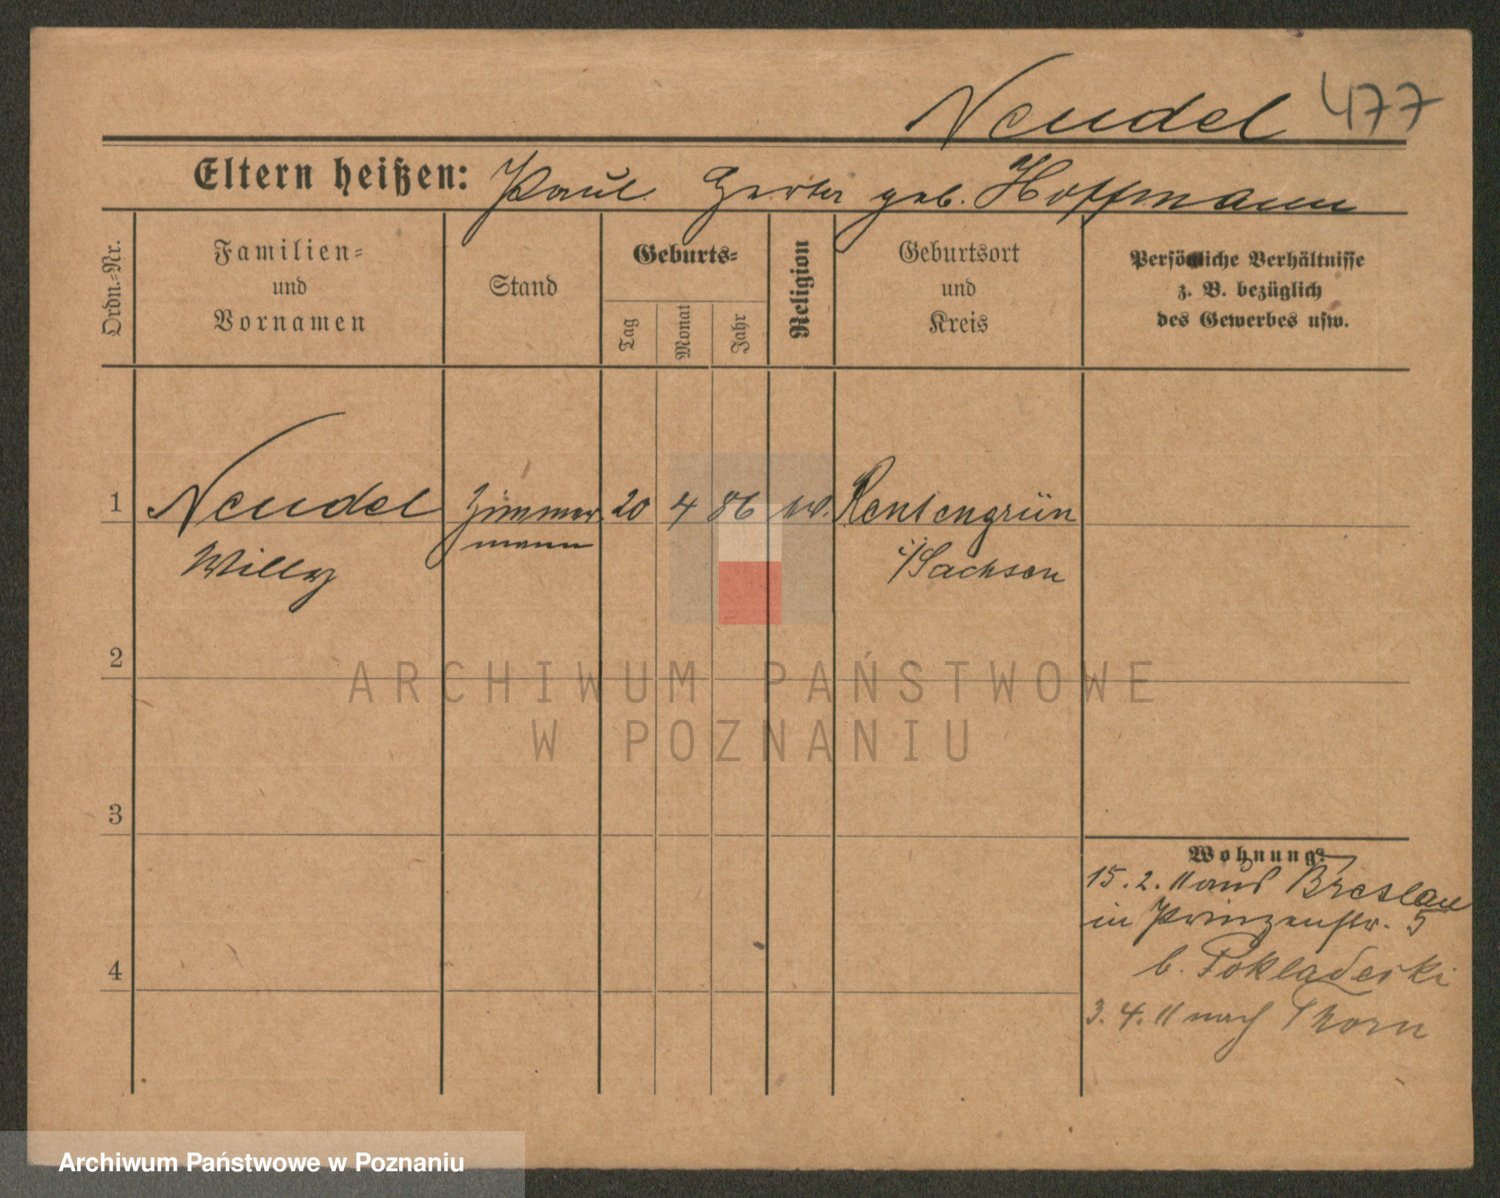 Neudel 477
Eltern heißen: Paul Herta geb. Hoffmann
Ordn.-Nr.
Familien-
und
Vornamen
Stand
Geburts-
Tag
Monat
Jahr
Religion
Geburtsort
und
Kreis
Persönliche Verhältnisse
z. B. bezüglich
des Gewerbes usw.
1 Neudel Zimmer 20 4 86
mann
Willy
i/Sachsen
2
3
4
Wohnung:
15.2.11 aus Breslau
in Prinzenstr. 5
b. Pokladecki
3.4.11 nach Thorn
ARCHIWUM PAŃSTWOWE
W POZNANIU
Archiwum Państwowe w Poznaniu